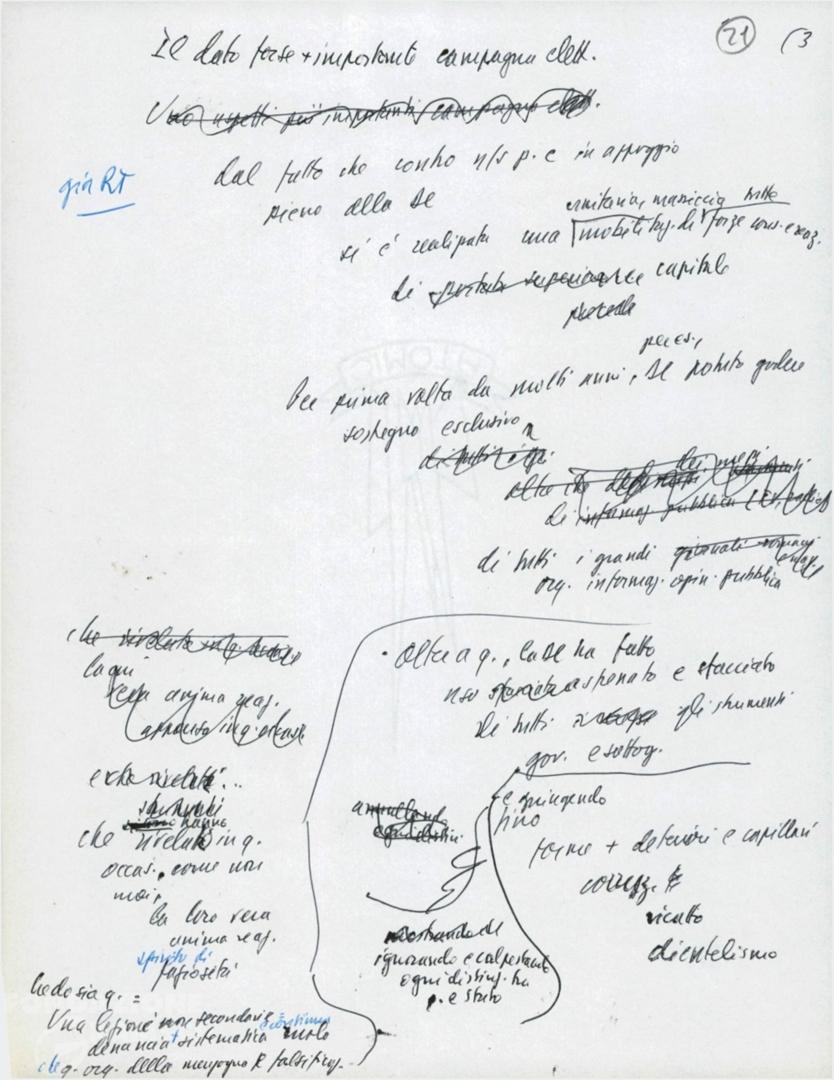 21 (3
Il dato forse + importante campagna elett.
Uno aspetti più importanti campagna elett.
già RT
dal fatto che contro n/s p. e in appoggio
pieno alla DC
unitaria, massiccia tutte
si è realizzata una mobilitaz. di forze cons. e reaz.
di capitale
per es.,
Per prima volta da molti anni, DC potuto godere
sostegno esclusivo
di tutti i
oltre che dei mezzi
di informaz. pubblica
di tutti i grandi giornali
org. informaz. opin. pubblica
che
la qui
vera anima reaz.
e che rivelati...
che hanno rivelato in q.
occas., come non
mai,
la loro vera
anima reaz.
spirito di
faziosità
• Oltre a q., la DC ha fatto
uso spenato e sfacciato
di tutti gli strumenti
gov. e sottog.
e spingendo
fino
forme + deteriori e capillari
corruz.
ricatto
clientelismo
annullando
mostrando di
ignorando e calpestando
ogni disting. tra
p. e stato
Credo sia q. =
Una lezione non secondaria
denuncia sistematica ruolo
che q. org. della menzogna e falsificaz.